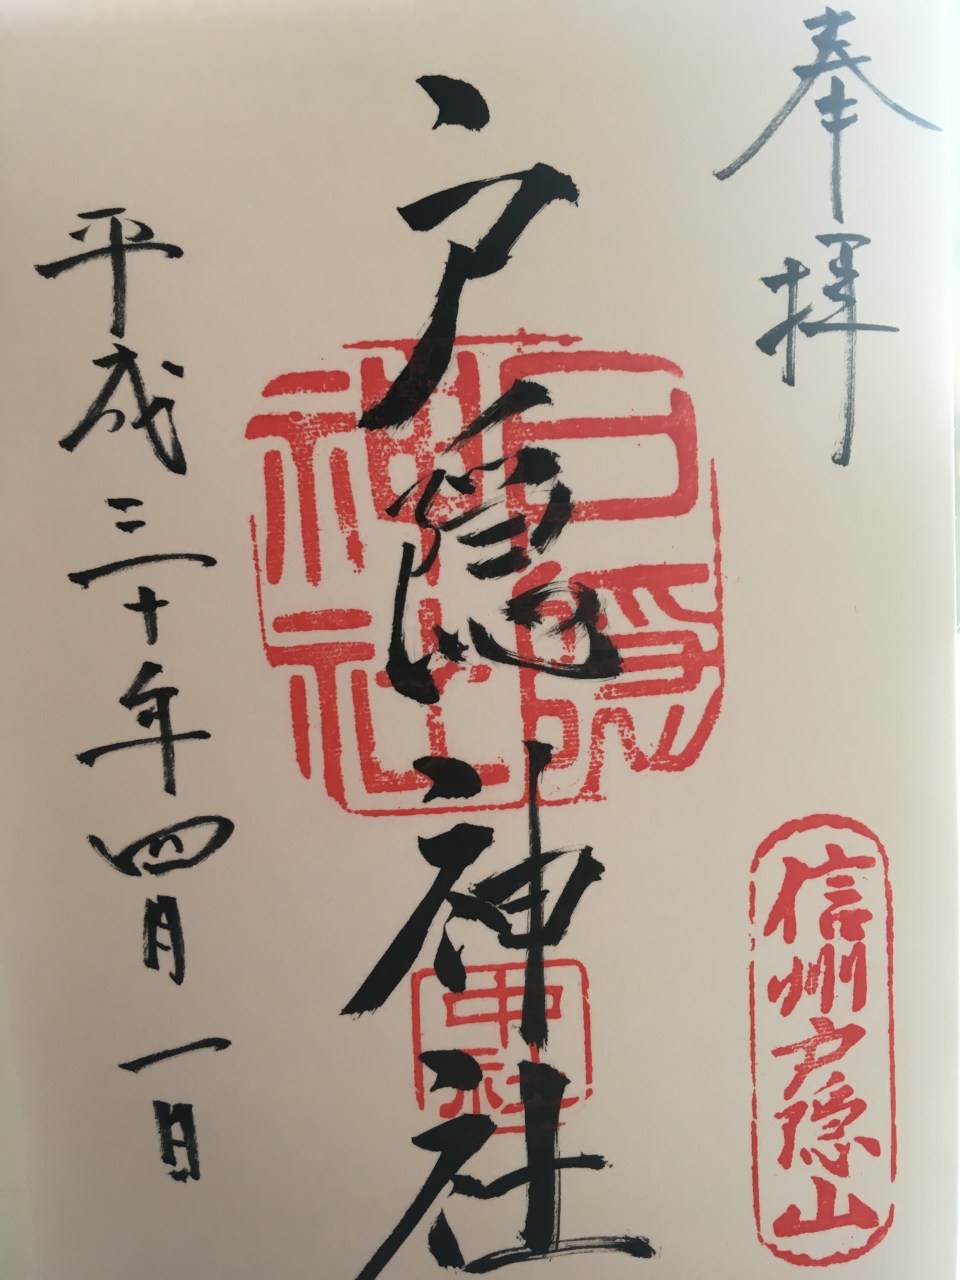 奉拝
信州戸隠山
戸隠神社
戸隠神社
中社
平成三十年四月一日